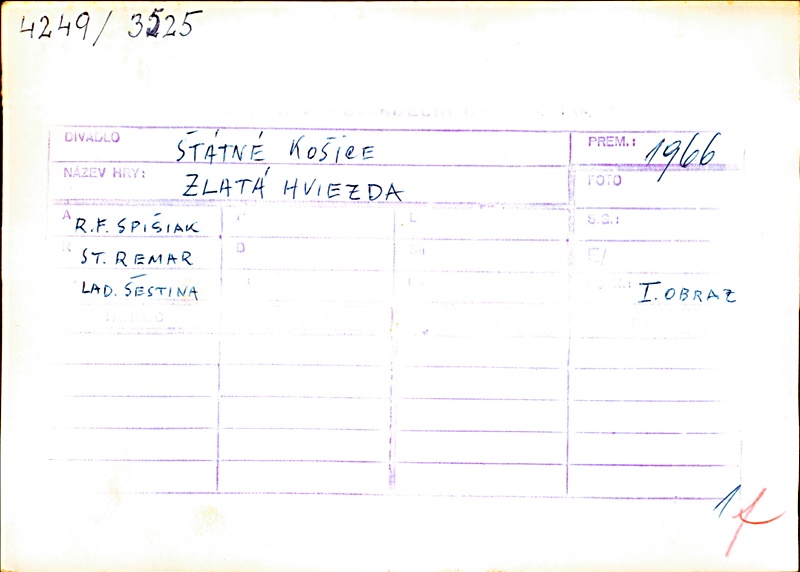 4249/ 3525
DIVADLO ŠTÁTNÉ KOŠICE PREM.: 1966
NÁZEV HRY: ZLATÁ HVIEZDA FOTO
A R.F. SPIŠIAK L S.G.:
R ST. REMAR D E/
LAD. ŠESTINA I. OBRAZ
1